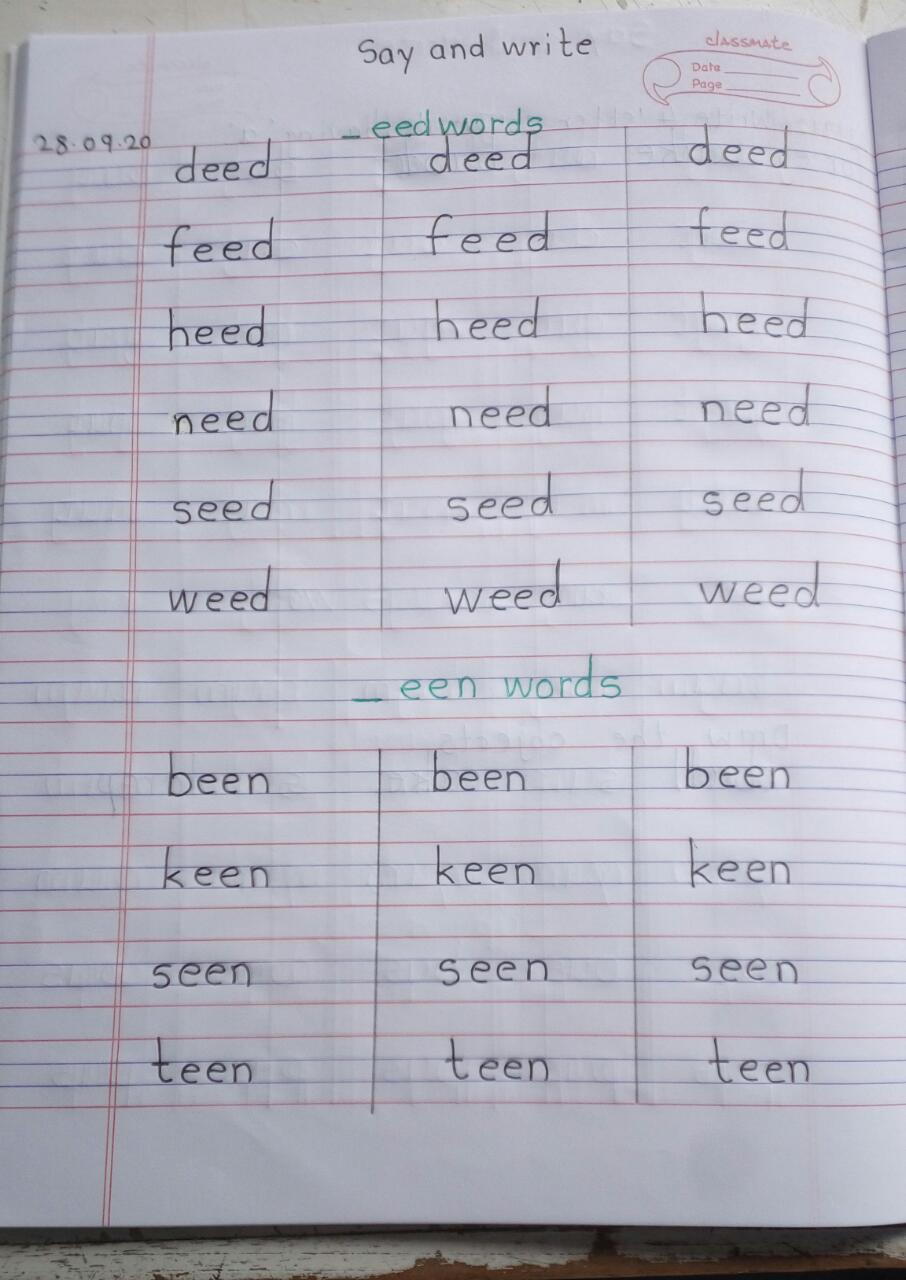 Say and write
classmate
Date
Page
_ eed words
28.09.20
deed deed deed
feed feed feed
heed heed heed
need need need
seed seed seed
weed weed weed
_ een words
been been been
keen keen keen
seen seen seen
teen teen teen